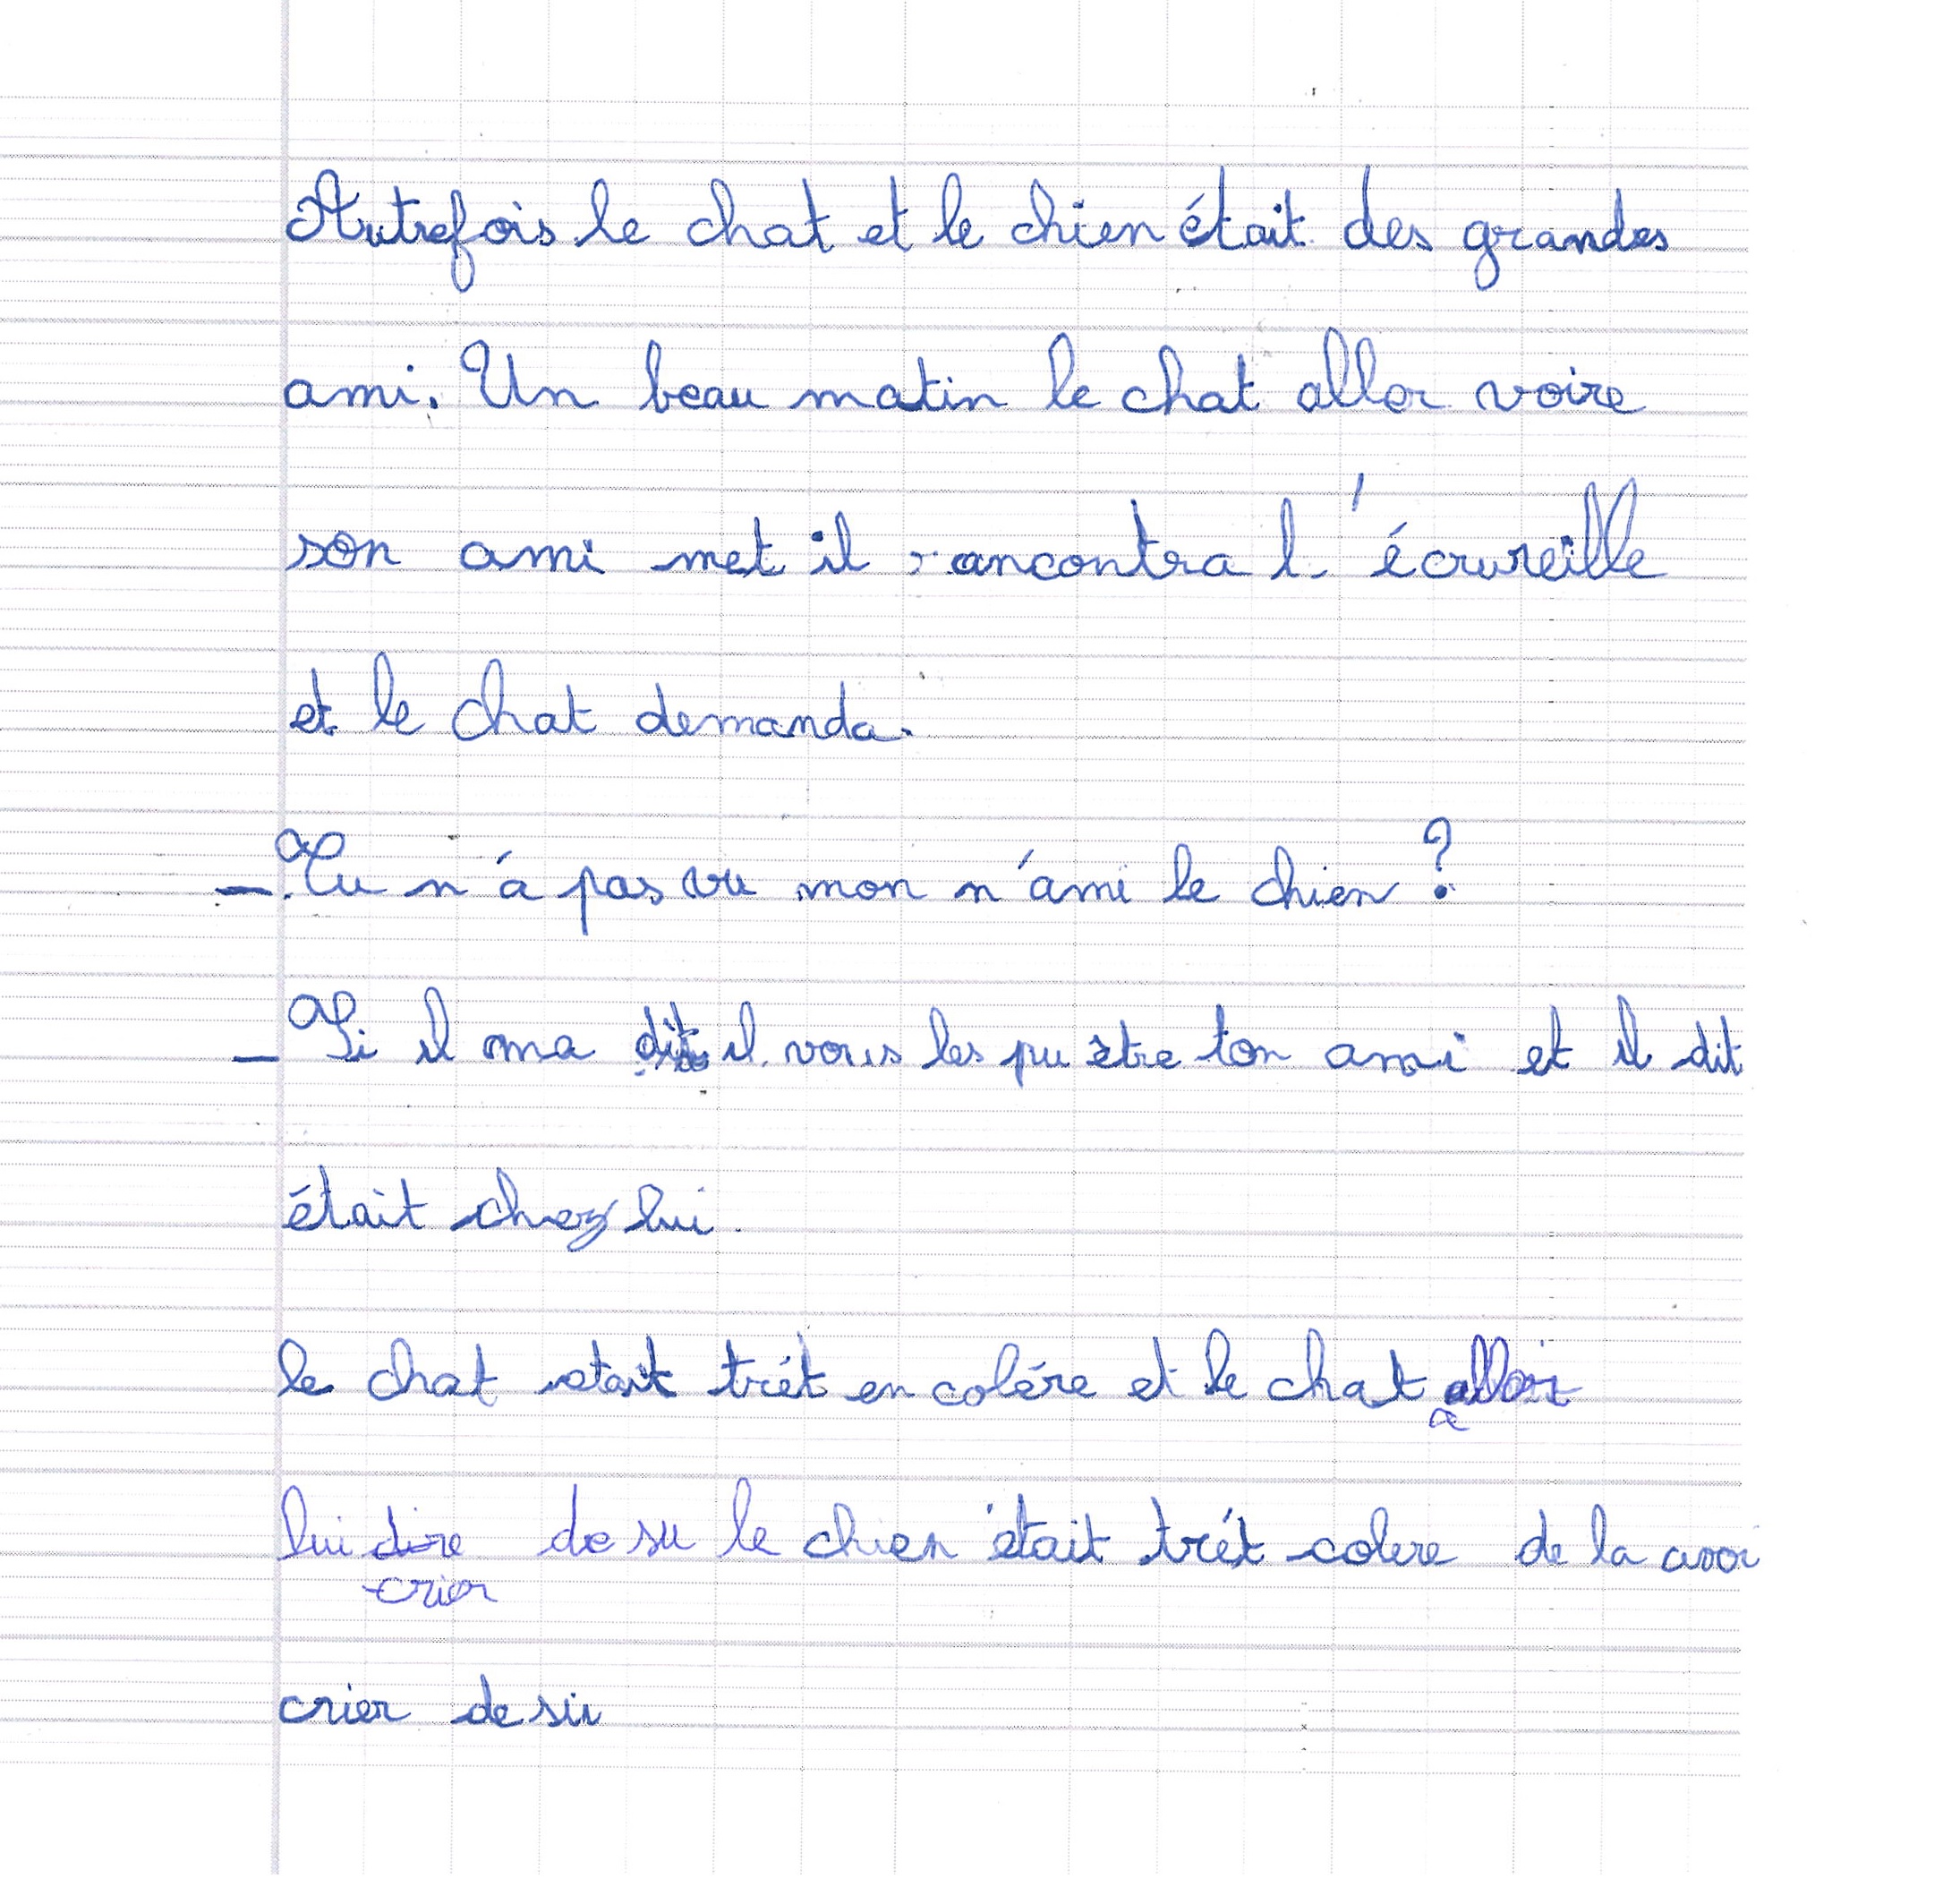 Autrefois le chat et le chien était des grandes
ami. Un beau matin le chat aller voire
son ami met il rancontra l'écureille
et le chat demanda.
– Tu n'a pas vu mon n'ami le chien ?
– Si il ma dit il vous les pu être ton ami et il dit
était chez lui.
le chat etait trét en colére et le chat aller
a
lui dire de su le chien était trét colere de la avoi
crier
crier de su